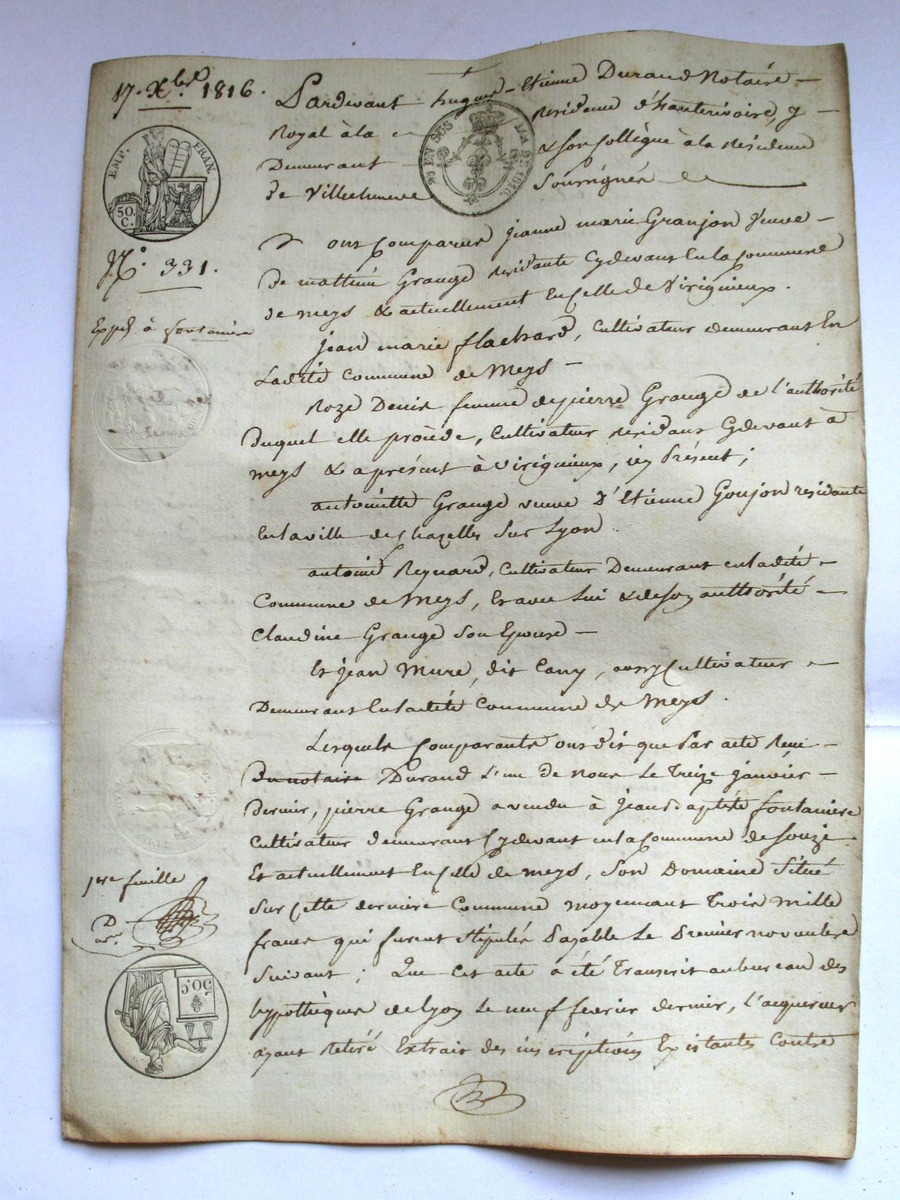 17. Xbre 1816.
EMP. FRAN.
50 C.
N°. 331.
Expé à fontanière
Pardevant hugues-Etienne Durand Notaire
Royal à la Residence d'hauterivoire, y
EN SUS
1816
Demeurant & son Collègue à la Residence
de Villecheneve Soussignés
ont comparus jeanne marie Granjon veuve
de mathieu Grange residante cydevant en la commune
de meys & actuellement en celle de Virigneux.
jean marie flachard, Cultivateur demeurant En
Ladite Commune de Meys
Roze Denis femme de pierre Grange de l'authorité
duquel elle procède, Cultivateur residant cydevant à
meys & aprésent à virigneux, icy Présent;
antoinette Grange veuve D'Etienne Goujon residante
En la ville de chazelles sur Lyon
antoine Reynard, Cultivateur Demeurant en ladite
Commune de Meys, et avec lui & de son authorité
Claudine Grange Son Epouse
Et jean Mure, dit Cany, aussy Cultivateur
Demeurant En ladite Commune de Meys.
Lesquels Comparants ont dit que Par acte Reçu
du notaire Durand L'un de nous Le Treize janvier
dernier, pierre Grange a vendu à jean Baptiste fontaniere
Cultivateur demeurant Cydevant en la Commune de Souzé
Et actuellement En Celle de meys, Son Domaine Situé
Sur Cette dernière Commune moyennant Trois mille
francs qui furent stipulés Payable Le Premier novembre
Suivant; Que Cet acte a été Transcrit au bureau des
hypothèques de Lyon Le neuf février dernier, L'acquereur
ayant Retiré Extrait des inscriptions Existantes Contre
1ere feuille
D
50 C.